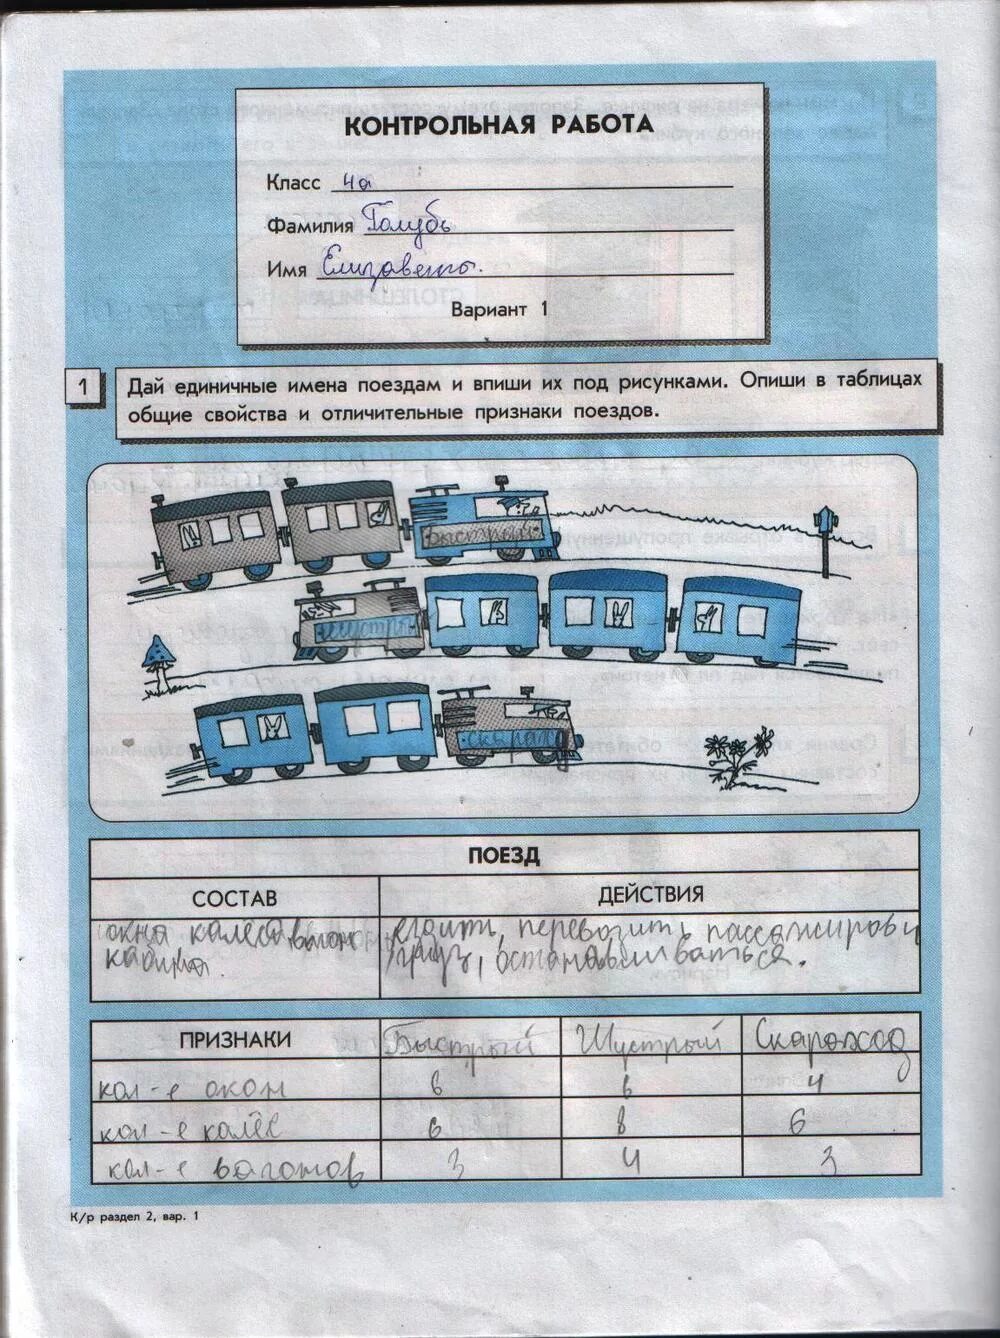 КОНТРОЛЬНАЯ РАБОТА
Класс 4а
Фамилия Голубь
Имя Елизавета.
Вариант 1
1 Дай единичные имена поездам и впиши их под рисунками. Опиши в таблицах
общие свойства и отличительные признаки поездов.
быстрый
шустрый
скараход
ПОЕЗД
СОСТАВ ДЕЙСТВИЯ
окна калёса вагон ездить, перевозить пассажиров и
кабина. груз, останавливаться.
ПРИЗНАКИ Быстрый Шустрый Скараход
кол-е окон 6 6 4
кол-е калёс 6 8 6
кол-е вагонов 3 4 3
К/р раздел 2, вар. 1